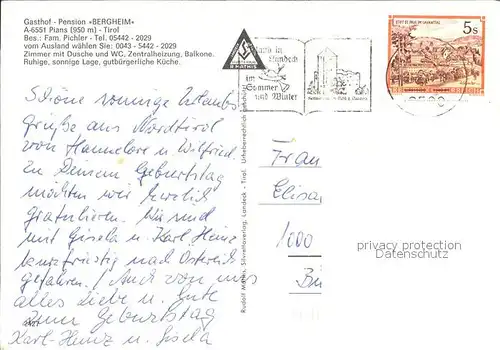 Gasthof - Pension «BERGHEIM»
A-6551 Pians (950 m) - Tirol
Bes.: Fam. Pichler - Tel. 05442 - 2029
vom Ausland wählen Sie: 0043 - 5442 - 2029
Zimmer mit Dusche und WC, Zentralheizung, Balkone.
Ruhige, sonnige Lage, gutbürgerliche Küche.
R. MATHIS
in
Landeck
im
Sommer
und Winter
STIFT ST. PAUL IM LAVANTTAL
5s
REPUBLIK ÖSTERREICH
Schöne sonnige Urlaubs
grüße aus Nordtirol
von Hannelore u. Wilfried.
Zu Deinem Geburtstag
möchten wir herzlich
gratulieren. Wir sind
mit Gisela u. Karl Heinz
kurzfristig nach Österreich
gefahren. Auch von uns
alles Liebe u. Gute
zum Geburtstag
Karl-Heinz u. Gisela
Rudolf Mathis, Silvrettaverlag, Landeck - Tirol. Urheberrechtlich geschützt
Frau
Elisa
1000
privacy protection
Datenschutz